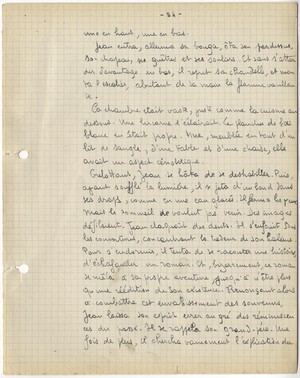 - 84 -
une en haut, une en bas.
Jean entra, alluma sa bougie, ôta son pardessus,
son chapeau, ses guêtres et ses souliers. Et sans s'attarder
davantage en bas, il reprit sa chandelle, et monta
l'escalier, abritant de sa main la flamme vacillante.
Sa chambre était vaste, juste comme la cuisine au
dessous. Une lucarne l'éclairait. Le plancher de bois
blanc en était propre. Nue, meublée en tout d'un
lit de sangle, d'une table et d'une chaise, elle
avait un aspect cénobitique.
Grelottant, Jean se hâta de se déshabiller. Puis,
ayant soufflé la lumière, il se jeta d'un bond dans
ses draps, comme en une eau glacée. Il ferma les yeux
mais le sommeil ne voulut pas venir. Des images
défilaient. Jean claquait des dents. Il s'enfouit sous
les couvertures, concentrant la chaleur de son haleine.
Pour s'endormir, il tenta de se raconter une histoire,
d'échafauder un roman. Et, bizarrement, ce roman
se mêla à sa propre aventure jusqu'à n'être plus
qu'une réédition de son existence. Renonçant alors
à combattre cet envahissement des souvenirs,
Jean laissa son esprit errer au gré des réminiscences
du passé. Il se rappela son grand-père. Une
fois de plus, il chercha vainement l'explication du